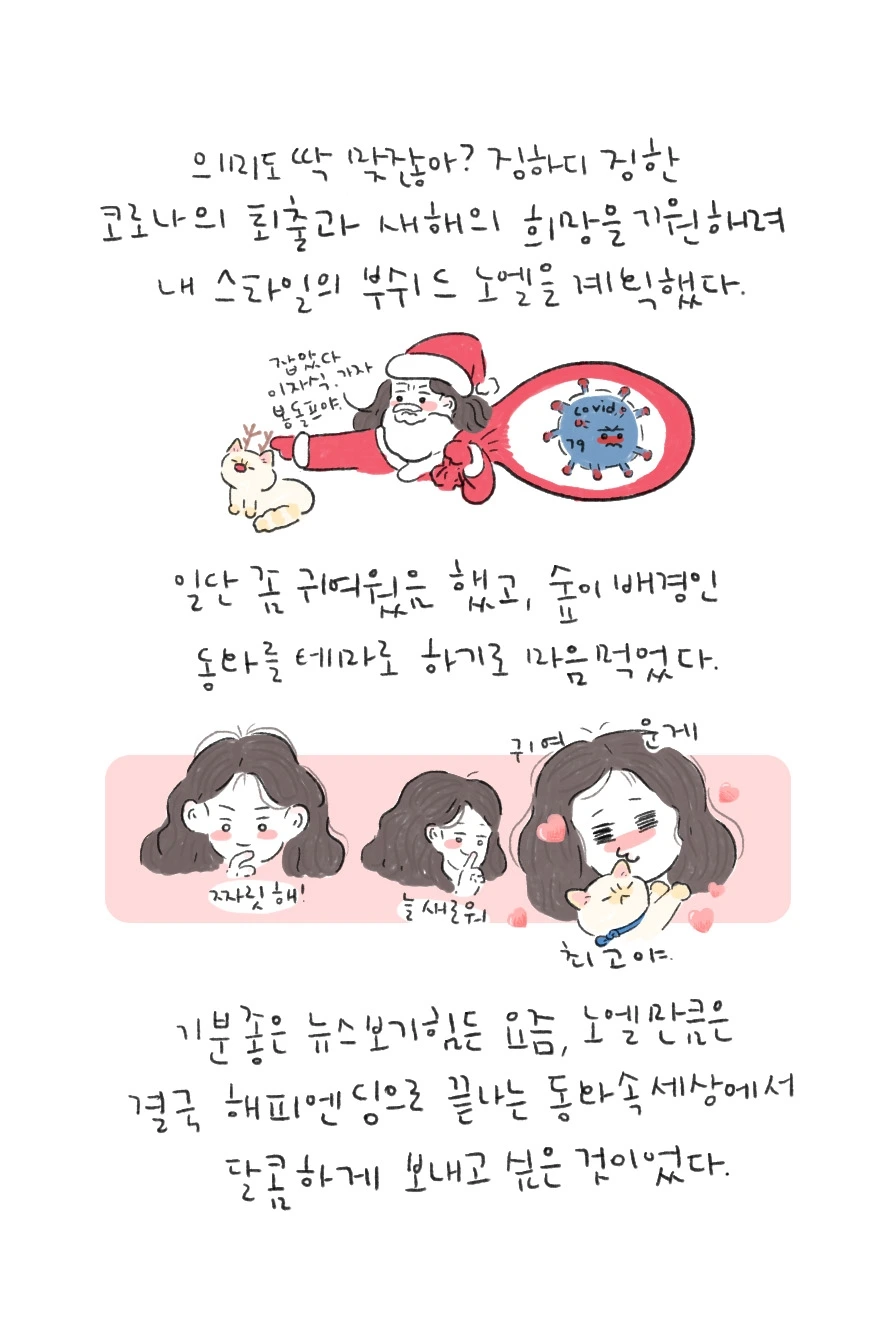 의미도 딱 맞잖아? 징하디 징한
코로나의 퇴출과 새해의 희망을 기원해려
내 스타일의 부쉬 드 노엘을 계획했다.
잡았다
이자식. 가자
봉돌프야.
covid
19
일단 좀 귀여웠음 했고, 숲이 배경인
동화를 테마로 하기로 마음먹었다.
귀여운게
짜릿해!
늘 새로워
최고야.
기분좋은 뉴스보기힘든 요즘, 노엘만큼은
결국 해피엔딩으로 끝나는 동화속세상에서
달콤하게 보내고 싶은 것이었다.